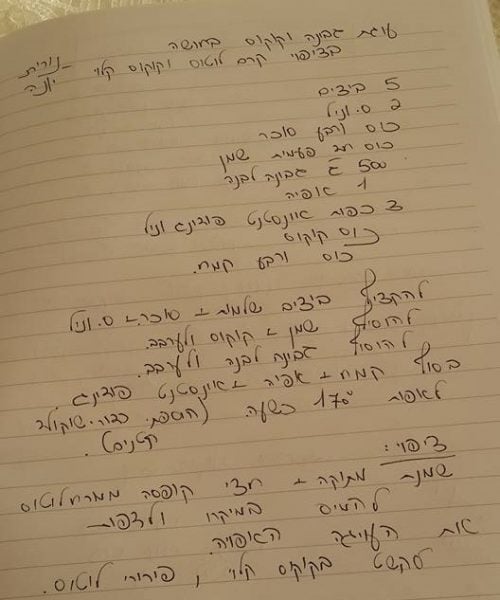 עוגת גבנה וקוקוס בחושה
בציפוי קרם לוטוס וקוקוס קלוי - נורית
יונה
5 ביצים
2 ס. וניל
כוס ורבע סוכר
כוס פחות שמן
500 ג גבנה לבנה
1 אפיה
3 כפות אינסטנט פודינג וניל
כוס קוקוס
כוס ורבע קמח.
להקציף ביצים שלמות + סוכר + ס. וניל
להוסיף שמן + קוקוס ולערבב.
להוסיף גבנה לבנה ולערבב.
בסוף קמח + אפיה + אינסטנט פודינג.
לאפות 170° כשעה. (תוספת כדורי שוקולד
קטנים).
ציפוי:
שמנת מתוקה + חצי קופסה ממרח לוטוס
להמיס במיקרו ולצפות
את העוגה האפויה.
לקשט בקוקוס קלוי, פירורי לוטוס.